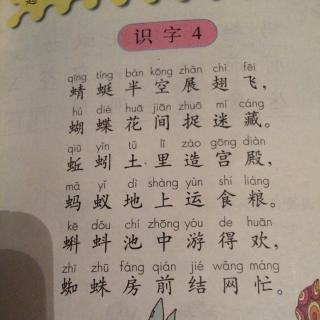 识字4
qīng tíng bàn kōng zhǎn chì fēi
蜻蜓半空展翅飞，
hú dié huā jiān zhuō mí cáng
蝴蝶花间捉迷藏。
qiū yǐn tǔ lǐ zào gōng diàn
蚯蚓土里造宫殿，
mǎ yǐ dì shàng yùn shí liáng
蚂蚁地上运食粮。
kē dǒu chí zhōng yóu de huān
蝌蚪池中游得欢，
zhī zhū fáng qián jié wǎng máng
蜘蛛房前结网忙。